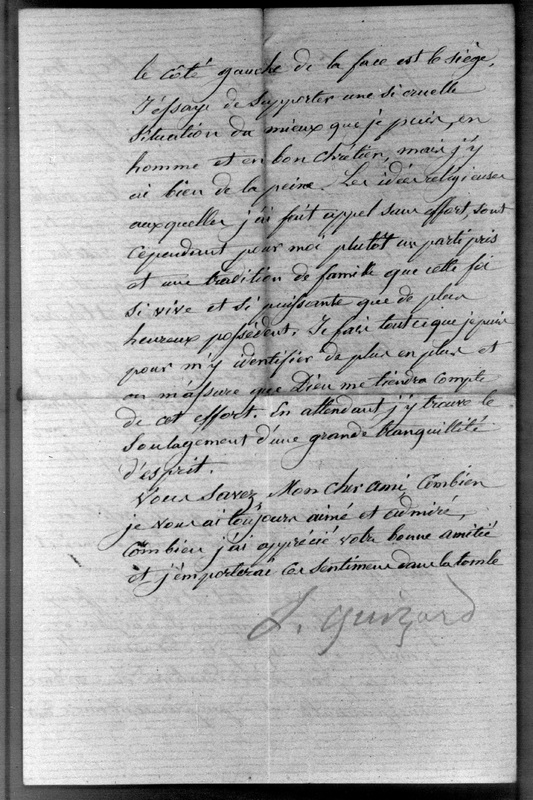 le côté gauche de la face est le siège.
J'éssaye de supporter une si cruelle
situation du mieux que je puis, en
homme et en bon chrétien, mais j'y
ai bien de la peine. Les idées religieuses
auxquelles j'ai fait appel sans effort, sont
cependant pour moi plutôt un parti pris
et une tradition de famille que cette foi
si vive et si puissante que de plus
heureux possèdent. Je fais tout ce que je puis
pour m'y identifier de plus en plus et
on m'assure que Dieu me tiendra compte
de cet effort. En attendant j'y trouve le
soulagement d'une grande tranquillité
d'esprit.
Vous savez Mon cher ami combien
je vous ai toujours aimé et admiré,
Combien j'ai apprécié votre bonne amitié
et j'emporterai ces sentiments dans la tombe
guizard